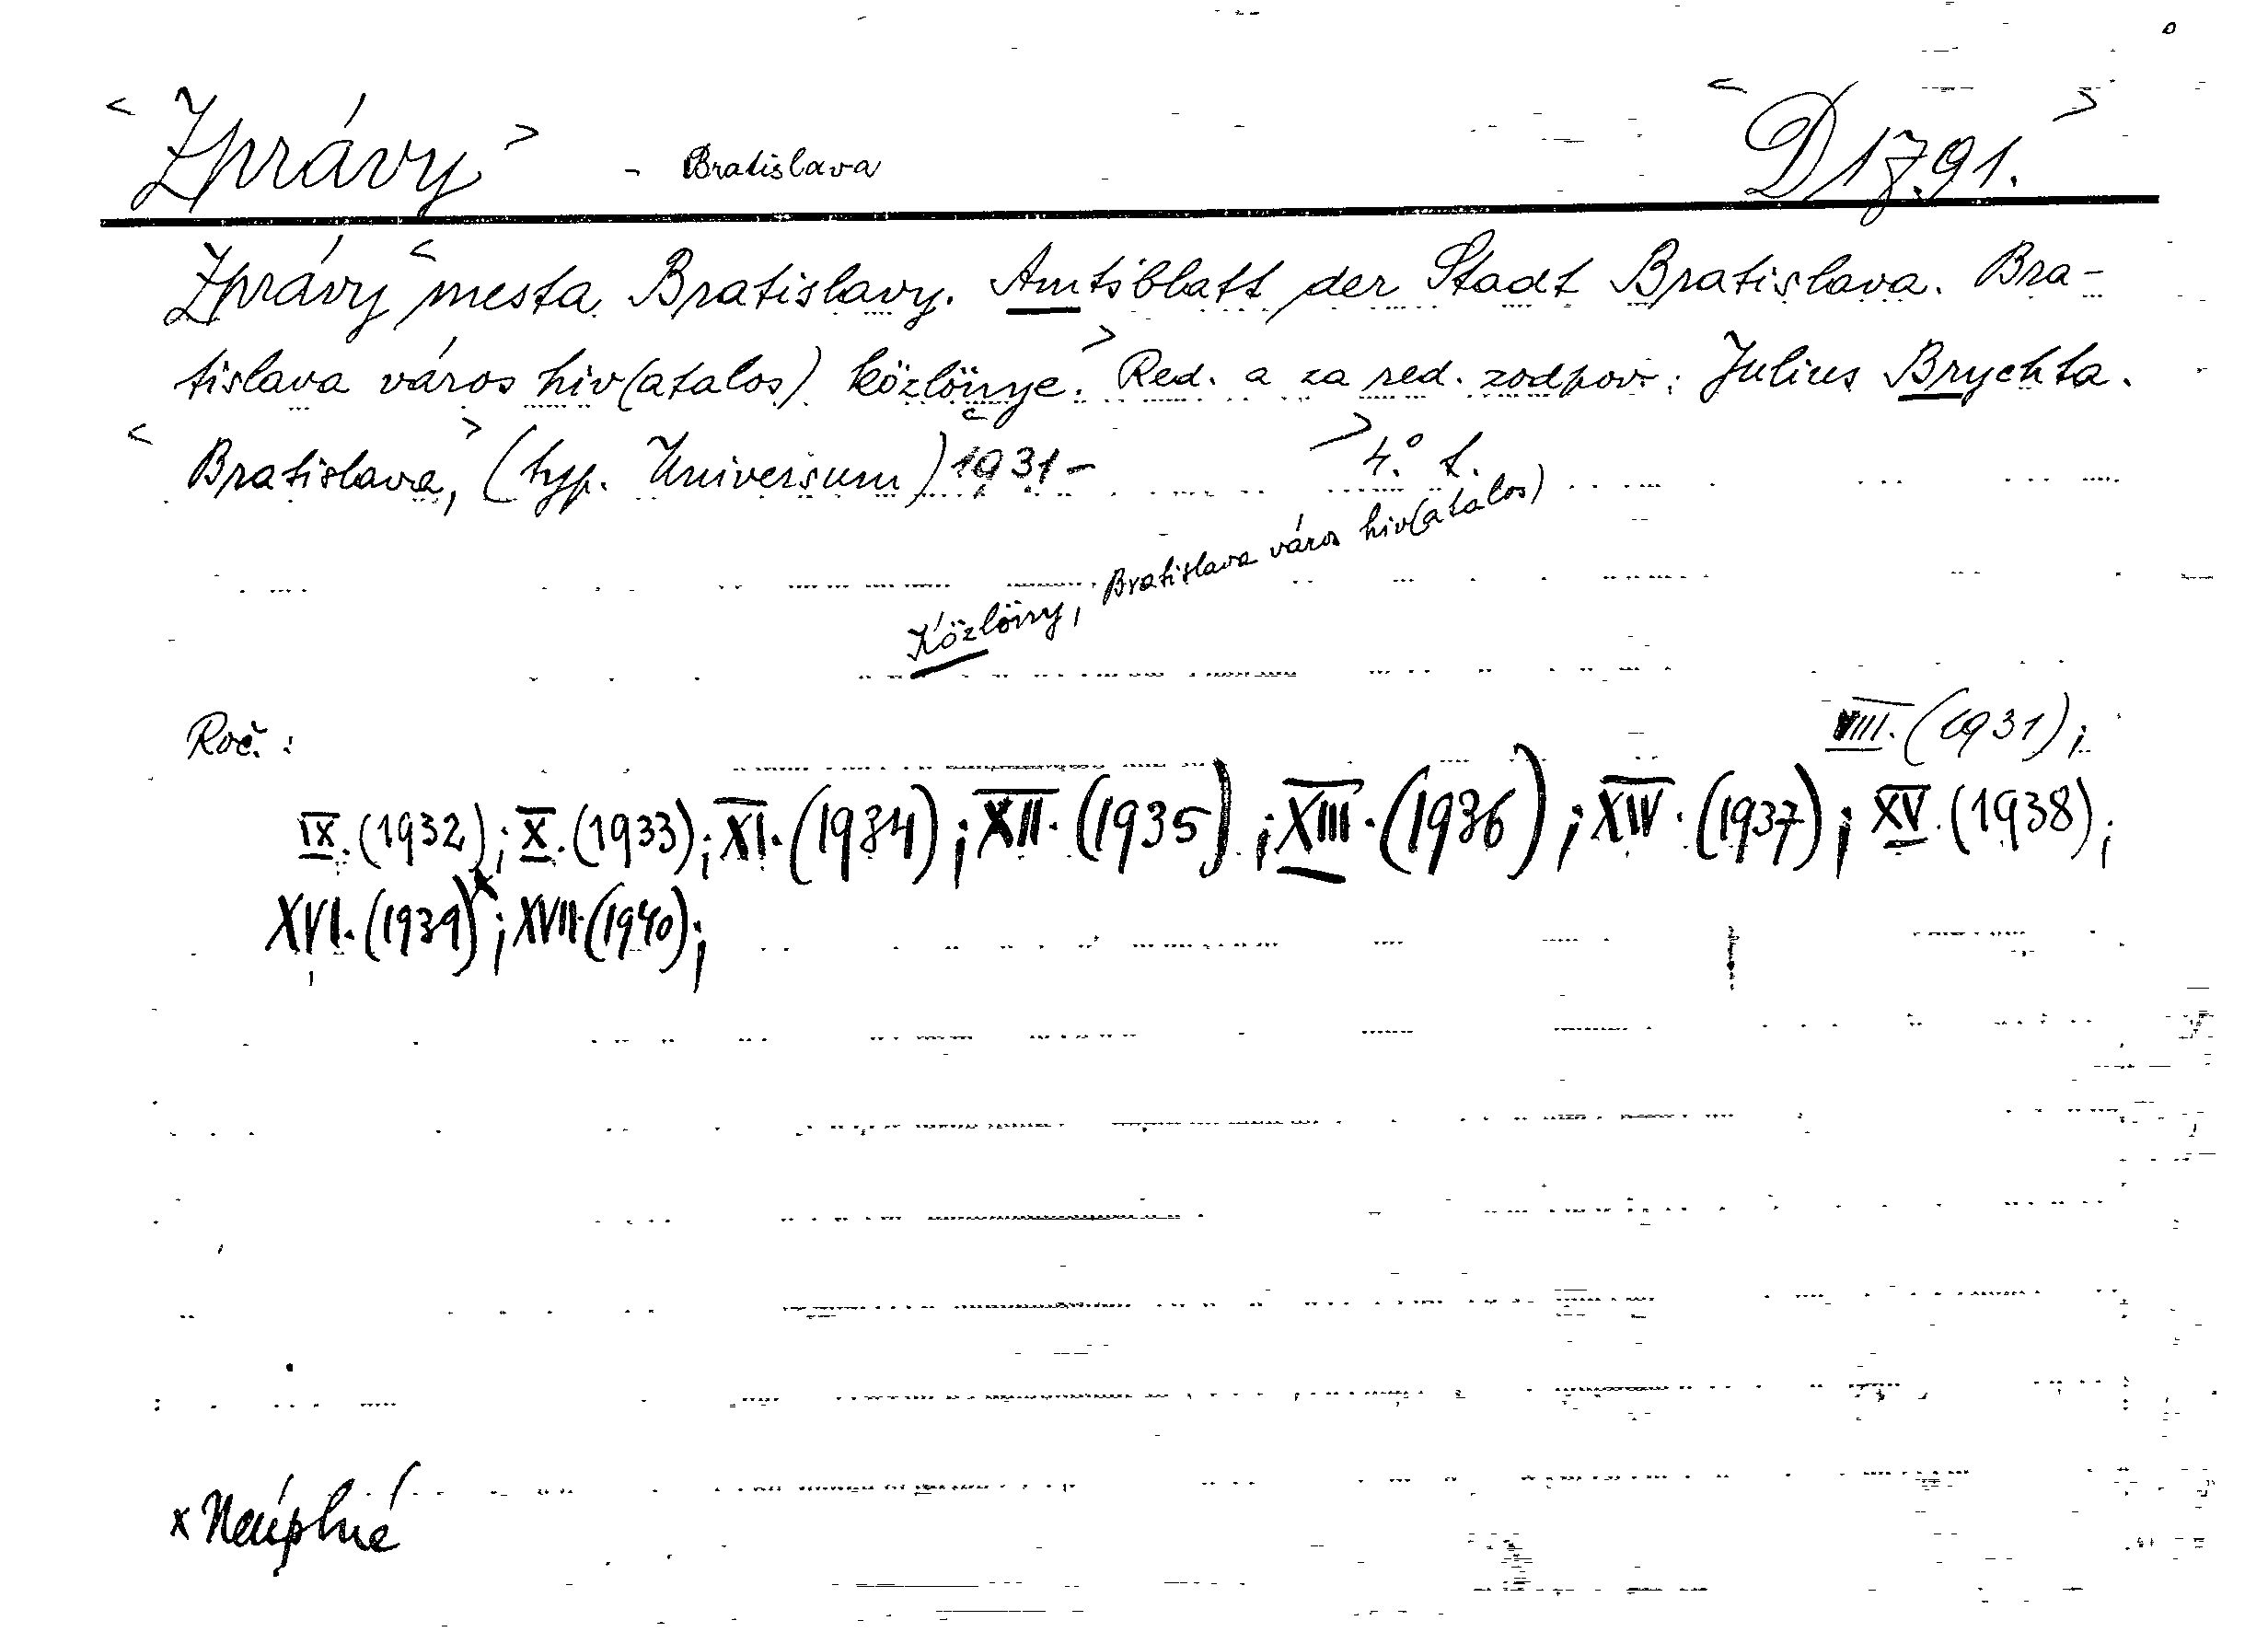 < Zprávy > - Bratislava < D 1791. >
Zprávy < mesta Bratislavy. Amtsblatt der Stadt Bratislava. Bra-
tislava város hiv(atalos) közlönye. > Red. a za red. zodpov.: Julius Brychta.
< Bratislava, > (typ. Universum) 1931- > 4.° f.
Közlöny, Bratislava város hiv(atalos)
Roč.: VIII. (1931);
IX. (1932); X. (1933); XI. (1934); XII. (1935); XIII. (1936); XIV. (1937); XV. (1938);
XVI. (1939)x; XVII. (1940);
x Neúplné